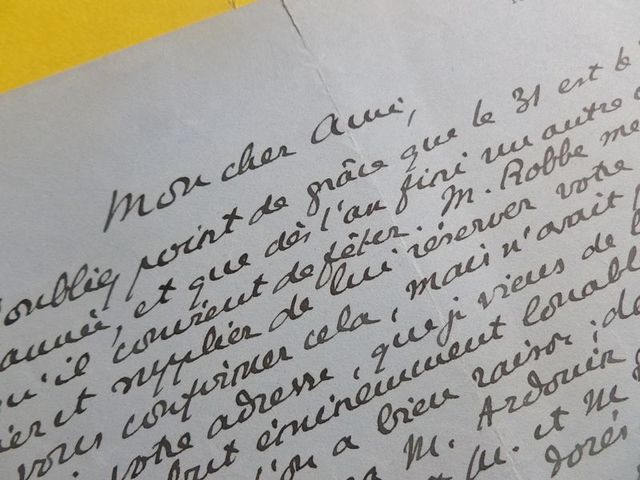 Mon cher Ami,
N'oubliez point de grâce que le 31 est le
année, et que dès l'an fini un autre
qu'il convient de fêter. M. Robbe me
et supplier de lui réserver votre
vous confirmer cela, mais n'avait
votre adresse, que je viens de
but éminemment louable
l'on a bien raison, de
M. Ardouin
M. et M
dorés